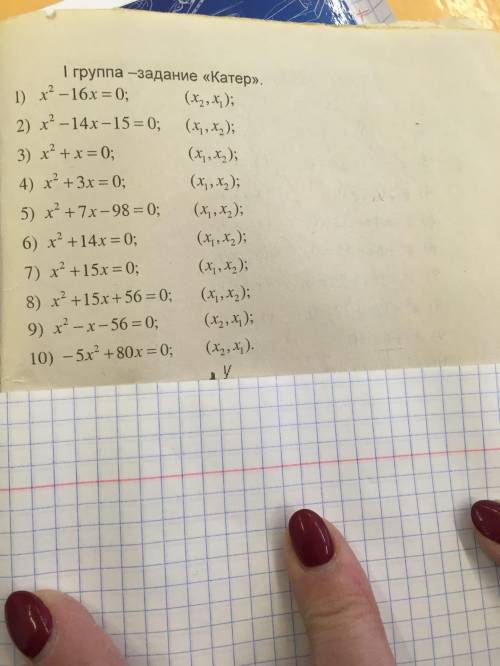 I группа –задание «Катер».
1) x² –16x = 0; (x₂, x₁);
2) x² –14x –15 = 0; (x₁, x₂);
3) x² + x = 0; (x₁, x₂);
4) x² + 3x = 0; (x₁, x₂);
5) x² + 7x – 98 = 0; (x₁, x₂);
6) x² +14x = 0; (x₁, x₂);
7) x² +15x = 0; (x₁, x₂);
8) x² +15x + 56 = 0; (x₁, x₂);
9) x² – x – 56 = 0; (x₂, x₁);
10) –5x² + 80x = 0; (x₂, x₁).
y